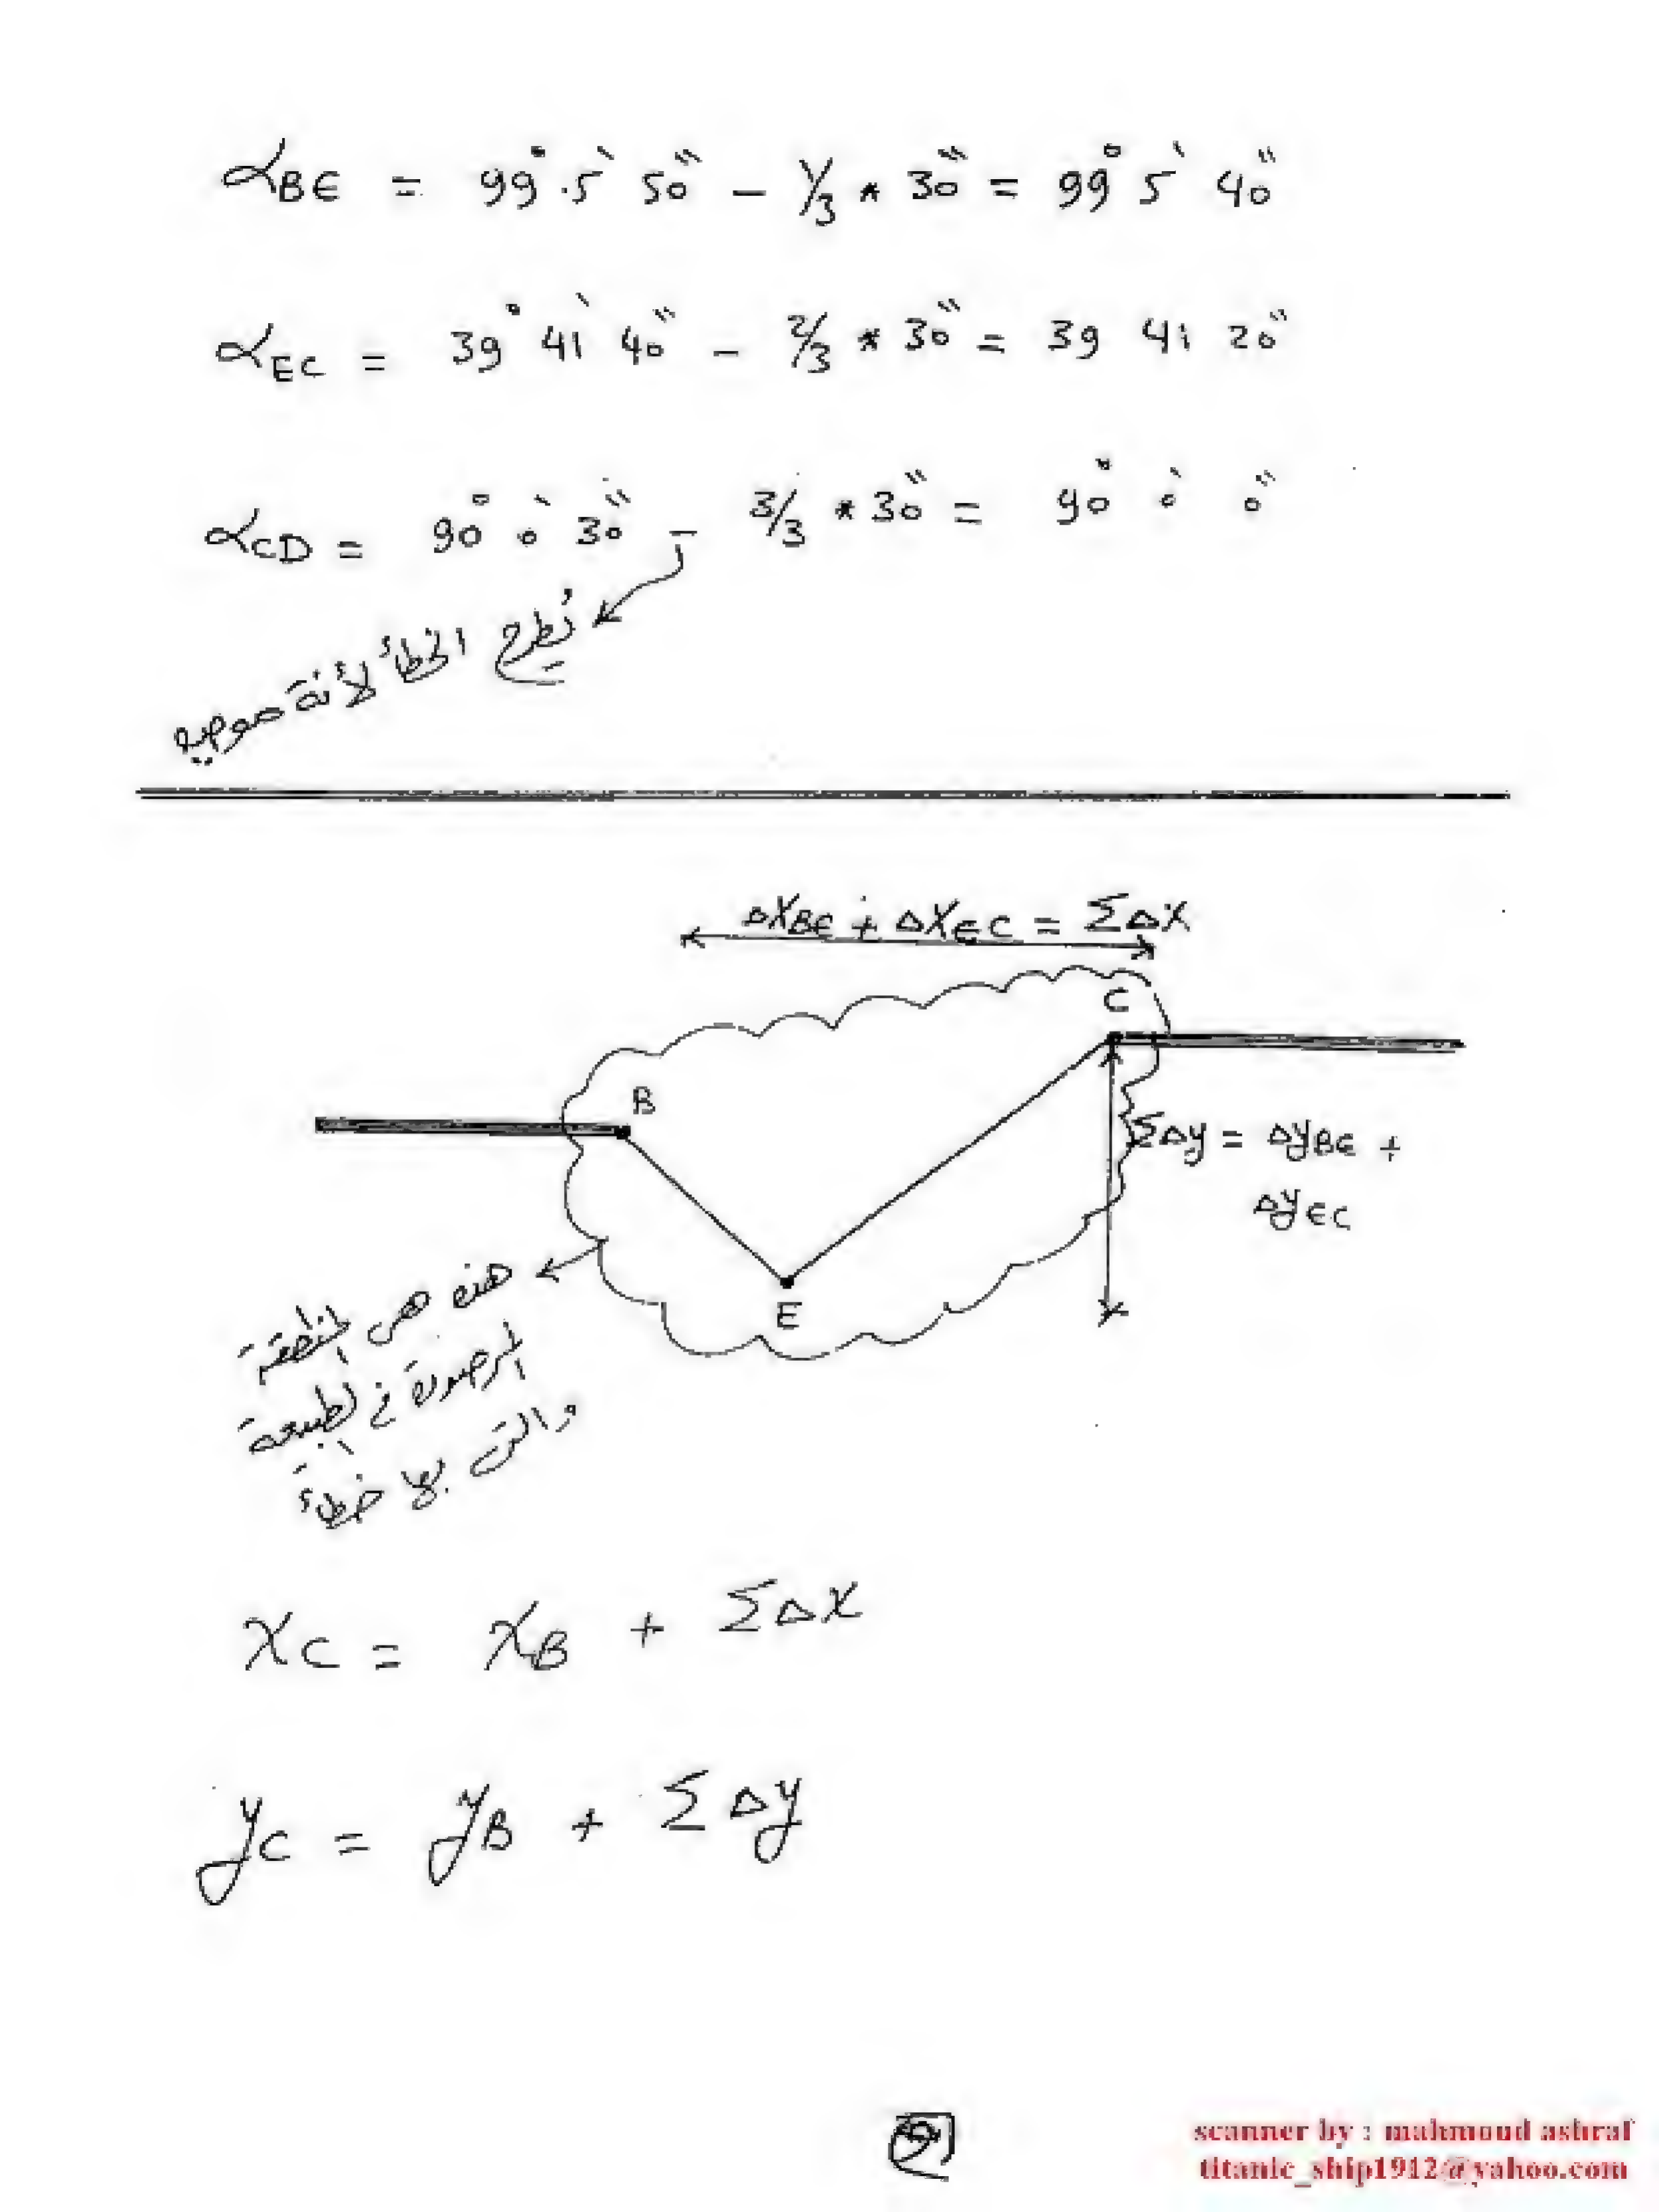 αBE = 99° 5' 50" - 1/3 * 30" = 99° 5' 40"
αEC = 39° 41' 40" - 2/3 * 30" = 39 41 20"
αCD = 90° 0' 30" - 3/3 * 30" = 90° 0' 0"
نطرح الخطأ لأنة موجب
ΔXBE + ΔXEC = ΣΔX
C
B
Σ∆y = ∆yBE +
∆yEC
E
هذه هى المنطقة
المرصودة فى الطبيعة
والتى بها خطأ
xC = xB + ΣΔx
yC = yB + ΣΔy
scanner by : mahmoud ashraf
titanic_ship1912@yahoo.com